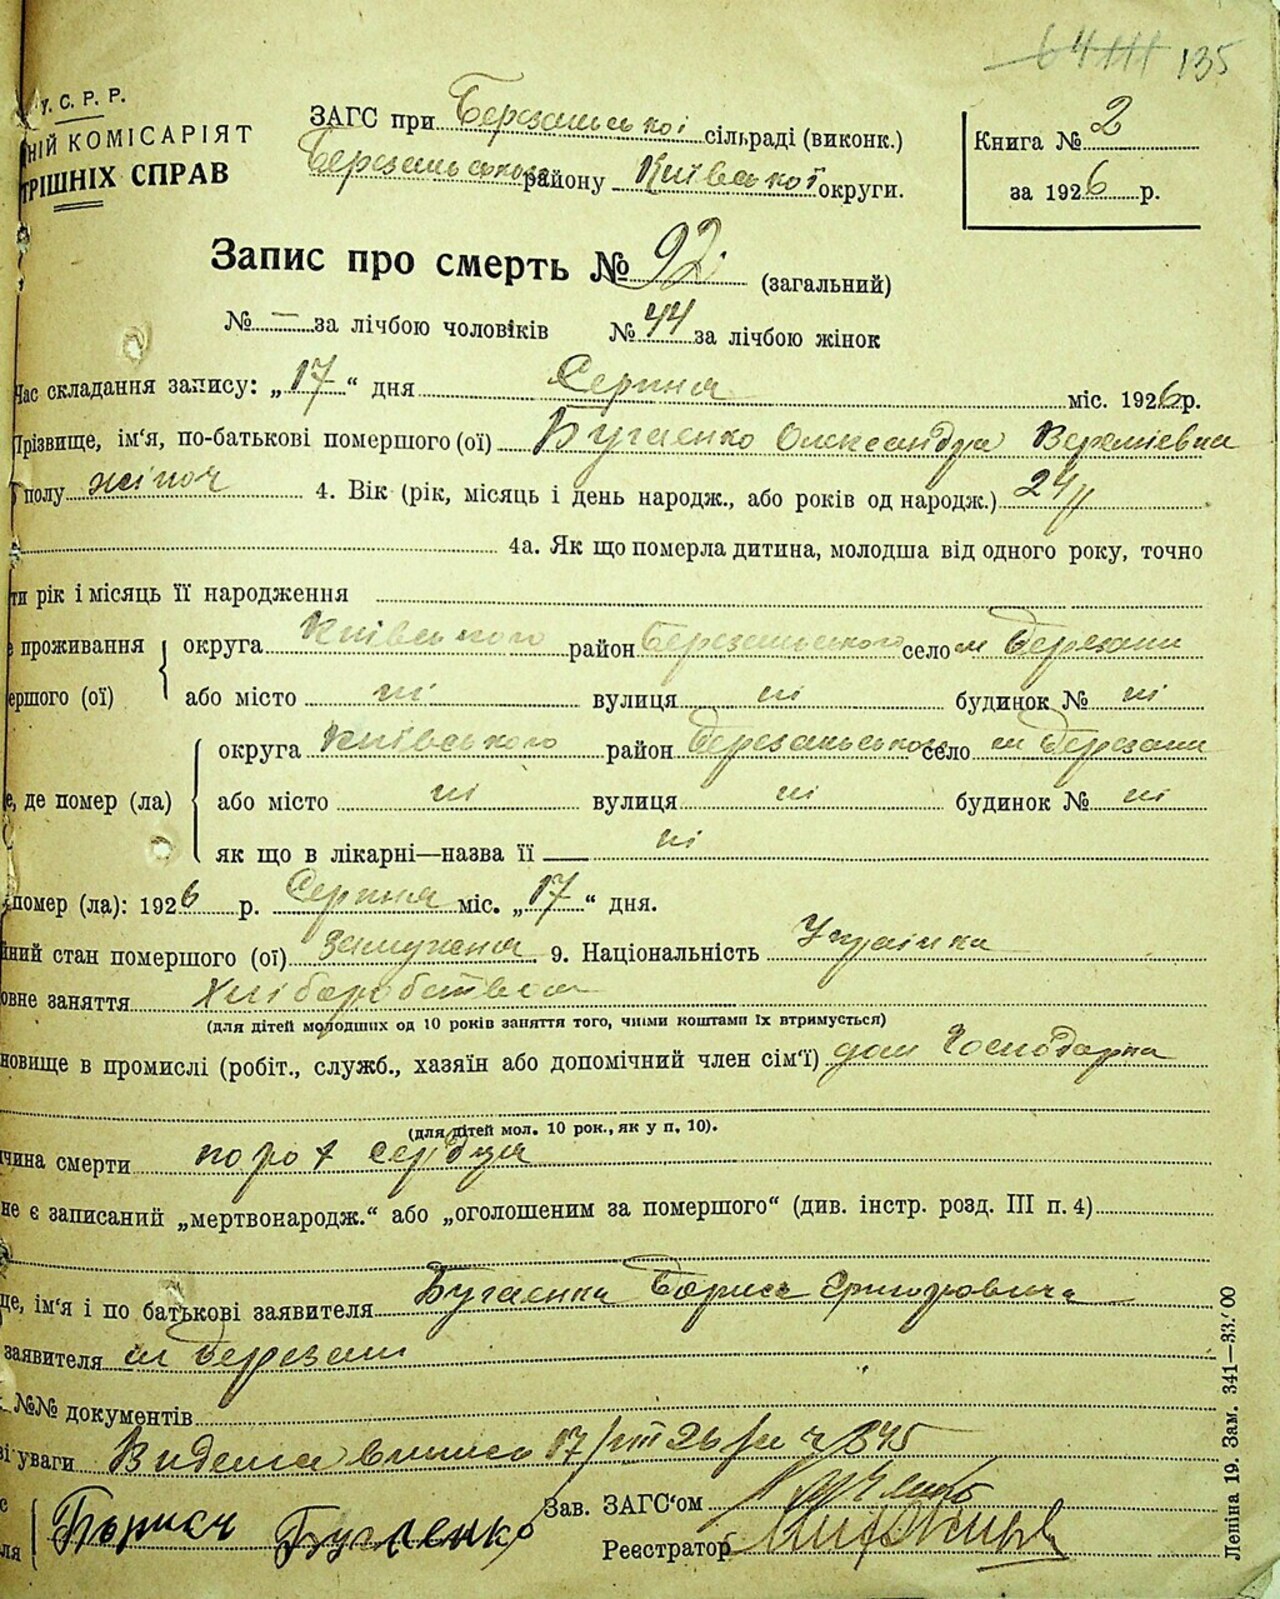 135
У. С. Р. Р.
НІЙ КОМІСАРІЯТ
ТРІШНІХ СПРАВ
ЗАГС при Березанської сільраді (виконк.)
Березанського району Київської округи.
Книга № 2
за 1926 р.
Запис про смерть № 92 (загальний)
№ — за лічбою чоловіків № 44 за лічбою жінок
Час складання запису: „17“ дня Серпня міс. 1926 р.
Прізвище, ім'я, по-батькові помершого (ої) Бугаенко Олександра Веремієвна
полу жіноч 4. Вік (рік, місяць і день народж., або років од народж.) 24 р
4а. Як що померла дитина, молодша від одного року, точно
ти рік і місяць її народження
е проживання округа Київського район Березанського село м Березани
ершого (ої) або місто ні вулиця ні будинок № ні
округа Київського район Березанського село м Березани
е, де помер (ла) або місто ні вулиця ні будинок № ні
як що в лікарні—назва її ні
помер (ла): 1926 р. Серпня міс. „17“ дня.
йний стан помершого (ої) замужена 9. Національність Українка
овне заняття Хліборобство
(для дітей молодших од 10 років заняття того, чиїми коштами їх втримується)
новище в промислі (робіт., служб., хазяїн або допомічний член сім'ї) дом Господарка
(для дітей мол. 10 рок., як у п. 10).
ичина смерти порок сердця
не є записаний „мертвонародж.“ або „оголошеним за помершого“ (див. інстр. розд. III п. 4)
ще, ім'я і по батькові заявителя Бугаенка Бориса Григоровича
заявителя м Березані
№№ документів
ві уваги Видана виписа 17/VIII 26 за ч 845
Зав. ЗАГС'ом
Борися Бугаенко
ля
Реестратор
Леніна 19. Зам. 341—33.'00